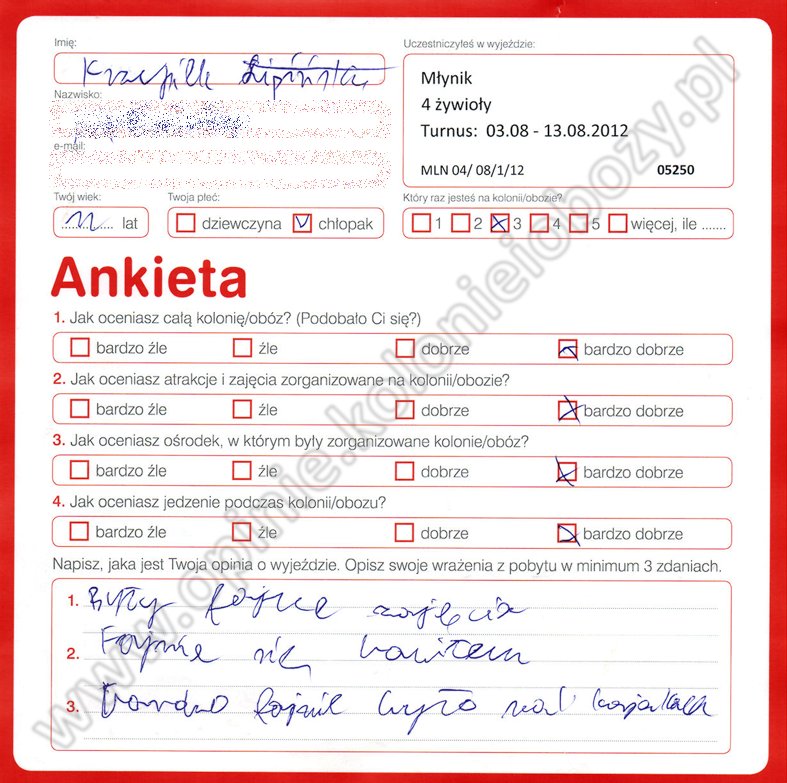 Imię:
Uczestniczyłeś w wyjeździe:
Młynik
4 żywioły
Turnus: 03.08 - 13.08.2012
MLN 04/ 08/1/12 05250
Nazwisko:
e-mail:
Twój wiek:
11 lat
Twoja płeć:
dziewczyna chłopak
Który raz jesteś na kolonii/obozie?
1 2 3 4 5 więcej, ile .......
Ankieta
1. Jak oceniasz całą kolonię/obóz? (Podobało Ci się?)
bardzo źle źle dobrze bardzo dobrze
2. Jak oceniasz atrakcje i zajęcia zorganizowane na kolonii/obozie?
bardzo źle źle dobrze bardzo dobrze
3. Jak oceniasz ośrodek, w którym były zorganizowane kolonie/obóz?
bardzo źle źle dobrze bardzo dobrze
4. Jak oceniasz jedzenie podczas kolonii/obozu?
bardzo źle źle dobrze bardzo dobrze
Napisz, jaka jest Twoja opinia o wyjeździe. Opisz swoje wrażenia z pobytu w minimum 3 zdaniach.
1. Były fajne zajęcia
2. Fajnie się bawiłem
3. Bardzo fajnie było na kajakach
www.opinie.kolonieiobozy.pl